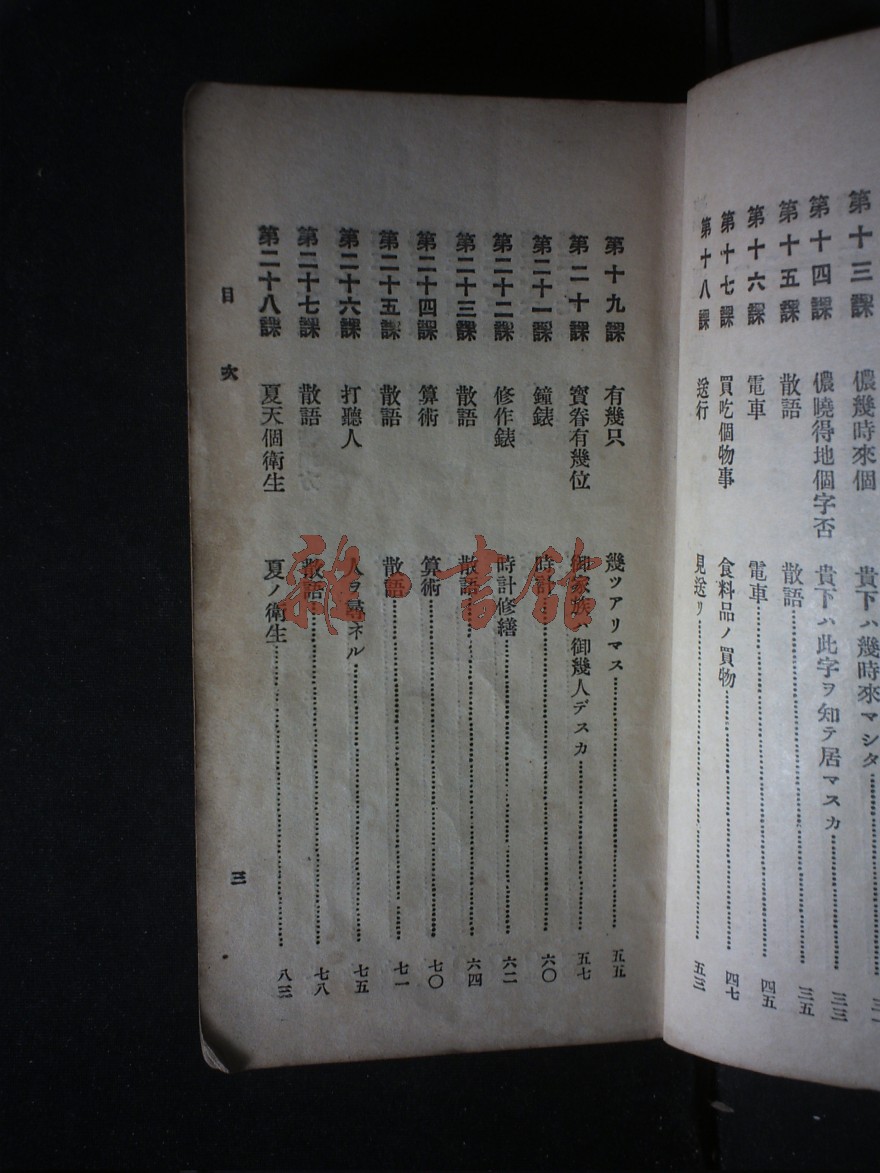 第十三課　儂幾時來個　貴下ハ幾時來マシタ
第十四課　儂曉得地個字否　貴下ハ此字ヲ知テ居マスカ……三三
第十五課　散語　散語……三五
第十六課　電車　電車……四五
第十七課　買吃個物事　食料品ノ買物……四七
第十八課　送行　見送リ……五三
第十九課　有幾只　幾ツアリマス……五五
第二十課　寶眷有幾位　御家族ハ御幾人デスカ……五七
第二十一課　鐘錶　時計……六〇
第二十二課　修作錶　時計修繕……六二
第二十三課　散語　散語……六四
第二十四課　算術　算術……七〇
第二十五課　散語　散語……七一
第二十六課　打聽人　人ヲ尋ネル……七五
第二十七課　散語　散語……七八
第二十八課　夏天個衛生　夏ノ衛生……八三
目次　三
雜·書舘